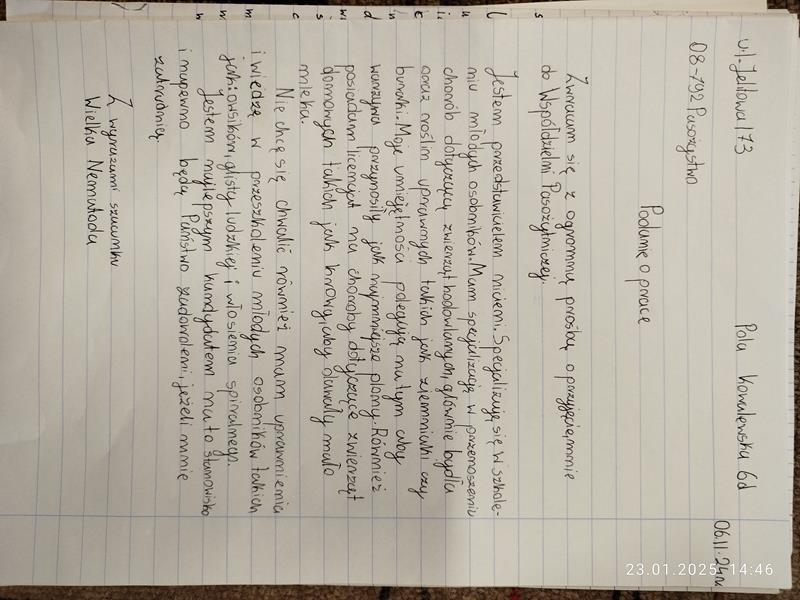 Pola Kowalewska 6d
06.11.24r
ul. Jelitowa 173
08-192 Pasożystwo
Podanie o prace
Zwracam się z ogromną prośbą o przyjęcie mnie
do Współdzielni Pasożytniczej.
Jestem przedstawicielem niciemi. Specjalizuję się w szkole-
niu młodych osobników. Mam specjalizację w przenoszeniu
chorób dotyczący zwierząt hodowlanych, głównie bydła
oraz roślin uprawnych takich jak ziemniaki czy
buraki. Moje umiejętności polegają na tym aby
warzywa przynosiły jak najmniejsze plony. Również
posiadam licencjat na choroby dotyczące zwierząt
domowych takich jak krowy, aby dawały mało
mleka.
Nie chcę się chwalić również mam uprawnienia
i wiedzę w przeszkoleniu młodych osobników takich
jak: owsików, glisty ludzkiej i włosienia spiralnego.
Jestem najlepszym kandydatem na to stanowisko
i napewno będą Państwo zadowoleni, jeżeli mnie
zatrudnią.
Z wyrazami szacunku
Wielka Nematoda
23.01.2025 14:46